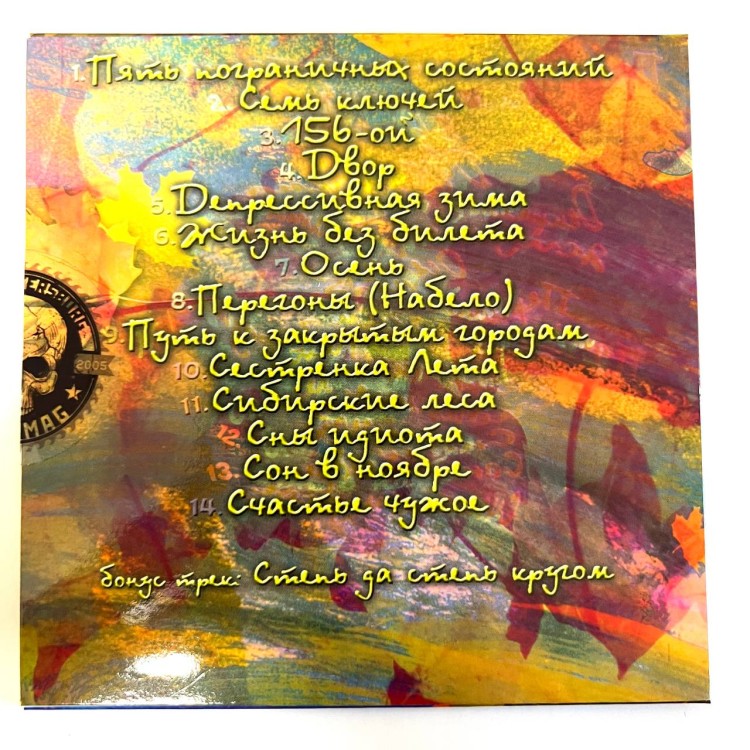 1. Пять пограничных состояний
2. Семь ключей
3. 156-ой
4. Двор
5. Депрессивная зима
6. Жизнь без билета
7. Осень
8. Перегоны (Набело)
9. Путь к закрытым городам
10. Сестренка Лета
11. Сибирские леса
12. Сны идиота
13. Сон в ноябре
14. Счастье чужое
бонус трек: Степь да степь кругом
2005
MAG